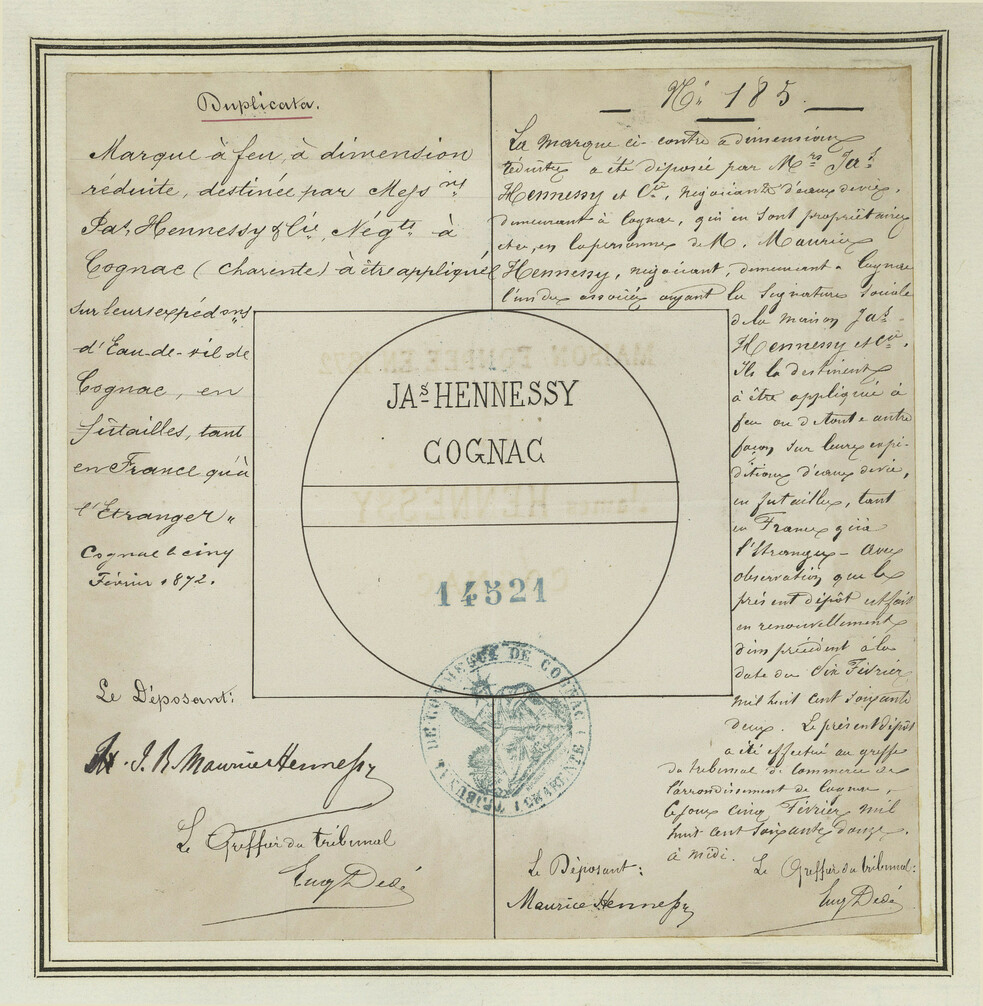 Duplicata.
Marque à feu, à dimension
réduite, destinée par Mess.rs
Jas Hennessy & Cie, Négts à
Cognac (Charente) à être appliquée
sur leurs expédons
d'Eau-de-vie de
Cognac, en
futailles, tant
en France qu'à
l'Etranger "
Cognac le cinq
Février 1872.
Le Déposant:
J. R. Maurice Hennessy
Le Greffier du tribunal
Eug Dedé
No 185.
La marque ci-contre à dimensions
réduites a été déposée par Mrs Jas
Hennessy et Cie, négociants d'eaux de vie,
demeurant à Cognac, qui en sont propriétaires
et ce, en la personne de M. Maurice
Hennessy, négociant, demeurant à Cognac
l'un des associés ayant la signature sociale
de la maison Jas
Hennessy et Cie.
Ils la destinent
à être appliquée à
feu ou de toute autre
façon sur leurs expé-
ditions d'eaux de vie,
en futailles, tant
en France qu'à
l'Etranger - Avec
observation que le
présent dépôt est fait
en renouvellement
d'un précédent à la
date du dix Février
mil huit cent soixante
deux. Le présent dépôt
a été effectué au greffe
du tribunal de commerce de
l'arrondissement de Cognac,
ce jour cinq Février mil
huit cent soixante douze,
à midi.
Le Déposant:
Maurice Hennessy
Le Greffier du tribunal:
Eug Dedé
JAS HENNESSY
COGNAC
14521
TRIBUNAL DE COMMERCE DE COGNAC (CHARENTE)
MAISON FONDEE EN 1872
James HENNESSY
COGNAC